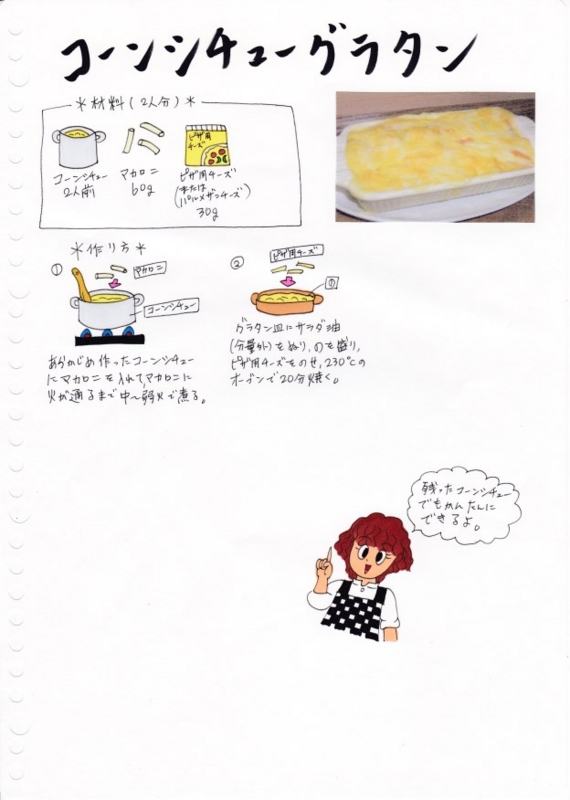 コーンシチューグラタン
＊材料(2人分)＊
コーンシチュー
2人前
マカロニ
60g
ピザ用
チーズ
ピザ用チーズ
(または
パルメザンチーズ)
30g
＊作り方＊
①
マカロニ
コーンシチュー
あらかじめ作ったコーンシチュー
にマカロニを入れて、マカロニに
火が通るまで中〜弱火で煮る。
②
ピザ用チーズ
①
グラタン皿にサラダ油
(分量外)をぬり、①を盛り、
ピザ用チーズをのせ、230℃の
オーブンで20分焼く。
残ったコーンシチュー
でもかんたんに
できるよ。